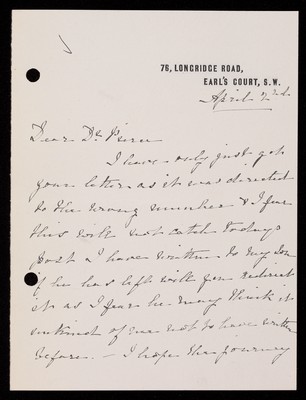 76, LONGRIDGE ROAD,
EARL'S COURT, S.W.
April 2nd.
Dear Dr
I have only just got
your letter, as it was directed
to the wrong number & I fear
this will not catch today's
post I have written to my Son
if he has left will you redirect
it as I fear he may think it
unkind of me not to have written
before. — I hope the journey